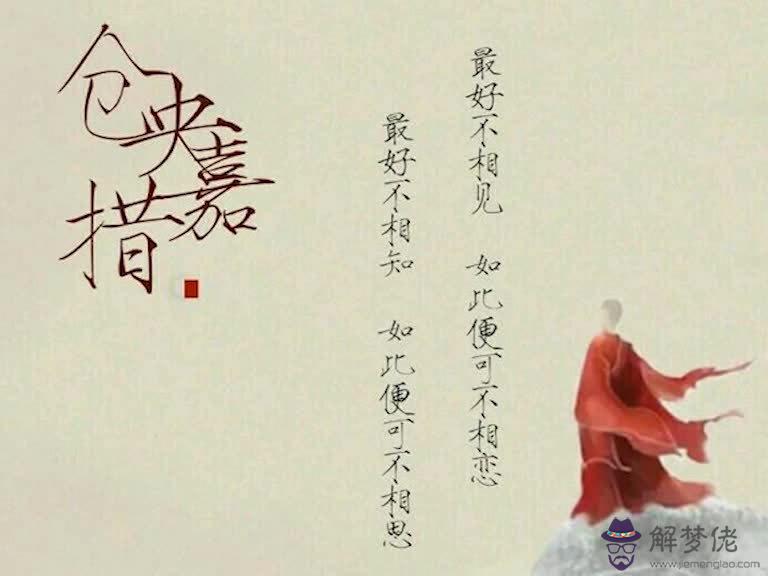 仓央嘉措
最好不相见 如此便可不相恋
最好不相知 如此便可不相思
解梦佬
www.jiemenglao.com